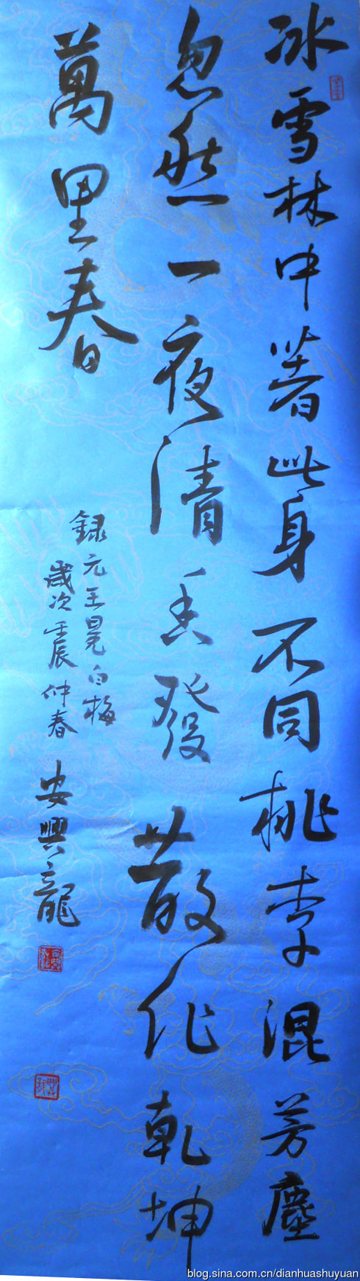 冰雪林中著此身不同桃李混芳塵
忽然一夜清香發散作乾坤
萬里春
録元王冕白梅
歲次壬辰仲春
安興龍
blog.sina.com.cn/dianhuashuyuan